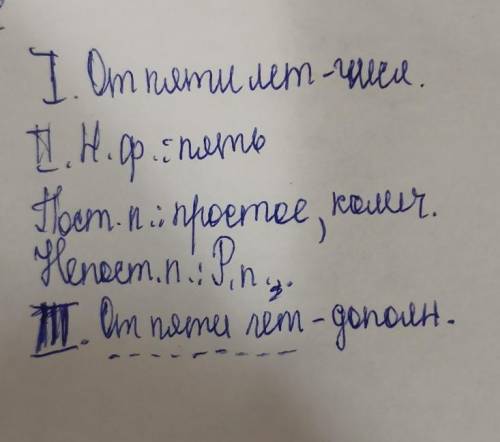 I. От пяти лет - числ.
II. Н. ф.: пять
Пост. п.: простое, колич.
Непост. п.: Р. п.
III. От пяти лет - дополн.